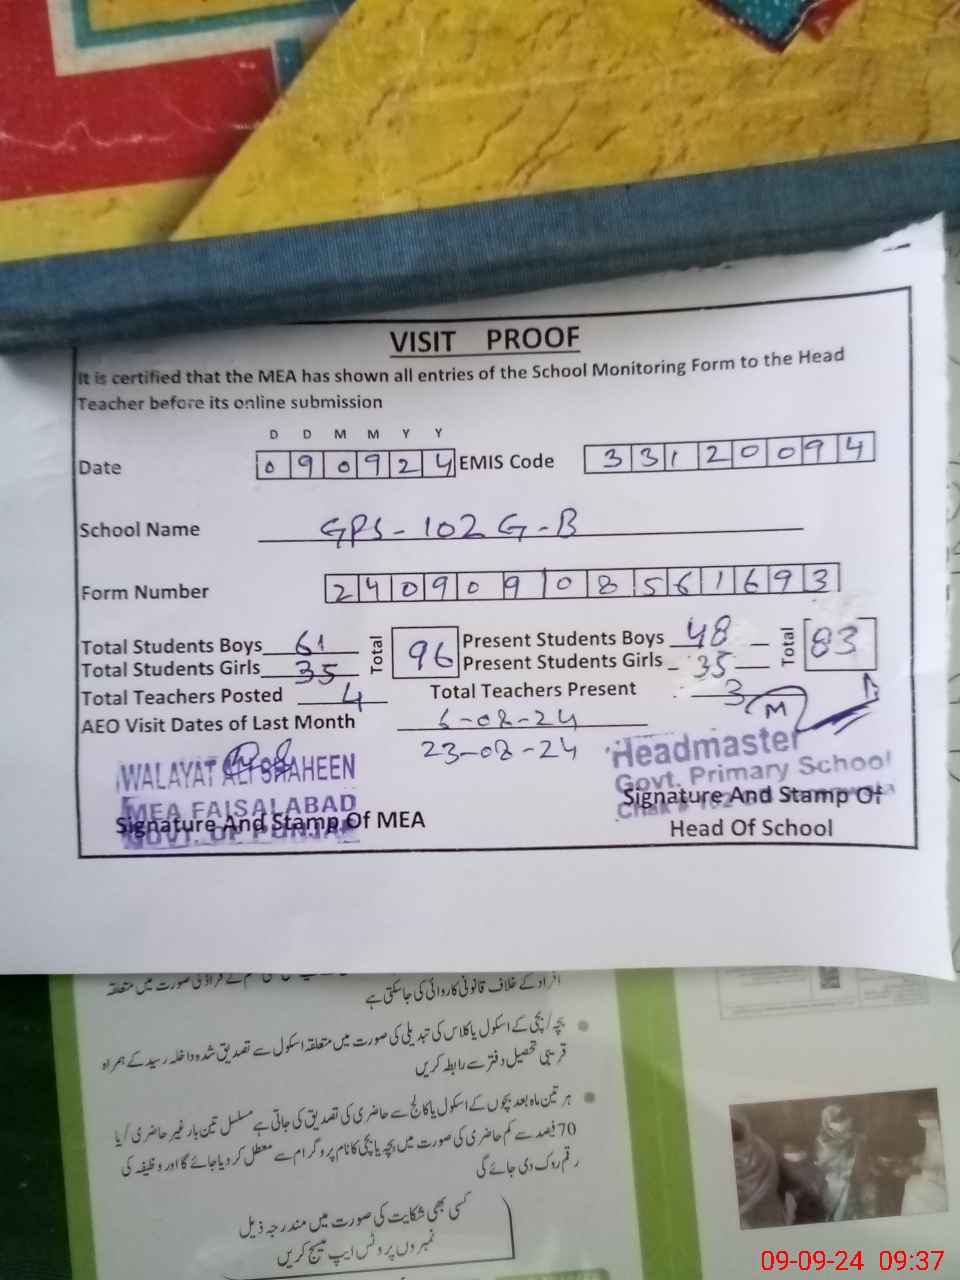 VISIT PROOF
It is certified that the MEA has shown all entries of the School Monitoring Form to the Head
Teacher before its online submission
D D M M Y Y
Date 090924 EMIS Code 33120094
School Name GPS-102 G-B
Form Number 24090908561693
Total Students Boys 61 Total 96 Present Students Boys 48 Total 83
Total Students Girls 35 Present Students Girls 35
Total Teachers Posted 4 Total Teachers Present 3
AEO Visit Dates of Last Month 6-08-24
23-08-24
WALAYAT ALI SHAHEEN
MEA FAISALABAD
GOVT. OF PUNJAB
Signature And Stamp Of MEA
Headmaster
Govt. Primary School
Chak # 102
Signature And Stamp Of
Head Of School
افراد کے خلاف قانونی کاروائی کی جاسکتی ہے
بچہ/بچی کے اسکول یا کلاس کی تبدیلی کی صورت میں متعلقہ اسکول سے تصدیق شدہ داخلہ رسید کے ہمراہ
قریبی تحصیل دفتر سے رابطہ کریں
ہر تین ماہ بعد بچوں کے اسکول یا کالج سے حاضری کی تصدیق کی جاتی ہے مسلسل تین بار غیر حاضری /یا
70 فیصد سے کم حاضری کی صورت میں بچہ یا بچی کا نام پروگرام سے معطل کر دیا جائے گا اور وظیفہ کی
رقم روک دی جائے گی
کسی بھی شکایت کی صورت میں مندرجہ ذیل
نمبروں پر وٹس ایپ میسج کریں
09-09-24 09:37